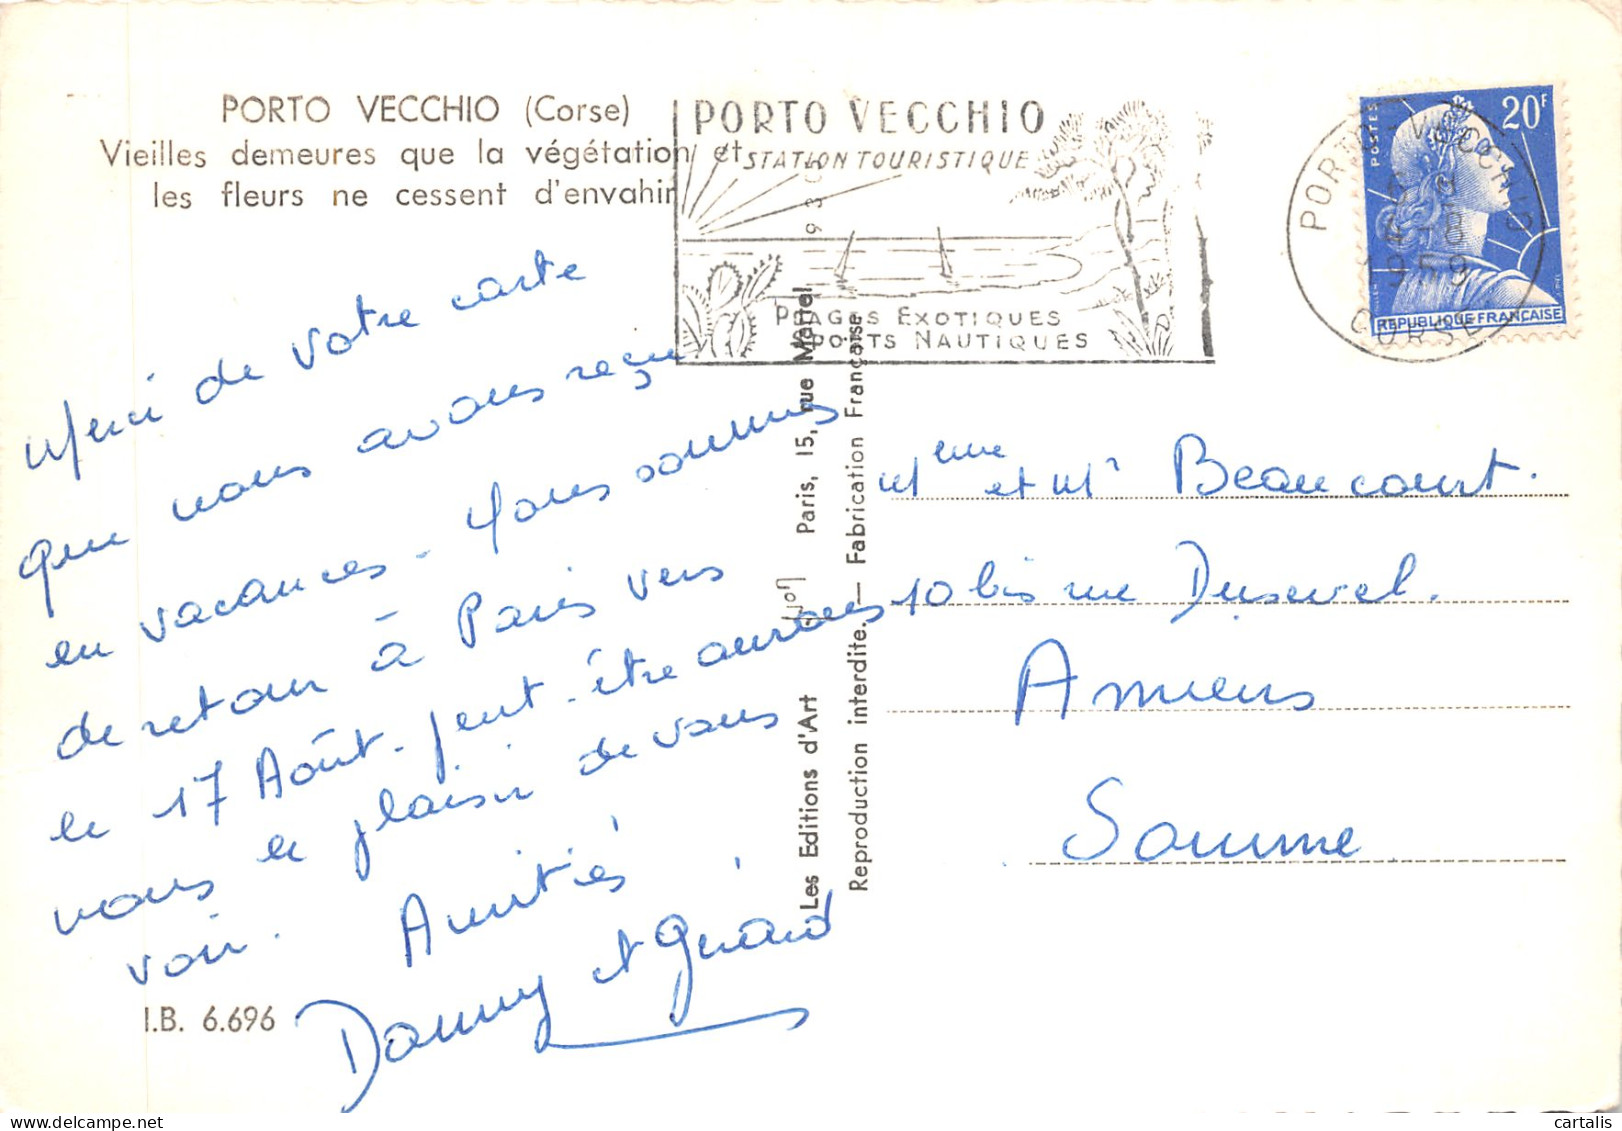 PORTO VECCHIO (Corse)
Vieilles demeures que la végétation et
les fleurs ne cessent d'envahir
PORTO VECCHIO
STATION TOURISTIQUE
PLAGES EXOTIQUES
SPORTS NAUTIQUES
PORTO-VECCHIO
4-8
1959
CORSE
POSTES
20F
REPUBLIQUE FRANÇAISE
Merci de votre carte
que nous avons reçu
en vacances - Nous sommes
de retour à Paris vers
le 17 Août - peut-être aurons
nous le plaisir de vous
voir. Amitiés
Danny et Gérard
I.B. 6.696
Les Editions d'Art Paris, 15, rue Martel
Reproduction interdite. — Fabrication Française
Meme et Mr Beaucourt.
10 bis rue Dusevel.
Amiens
Somme
cartalis